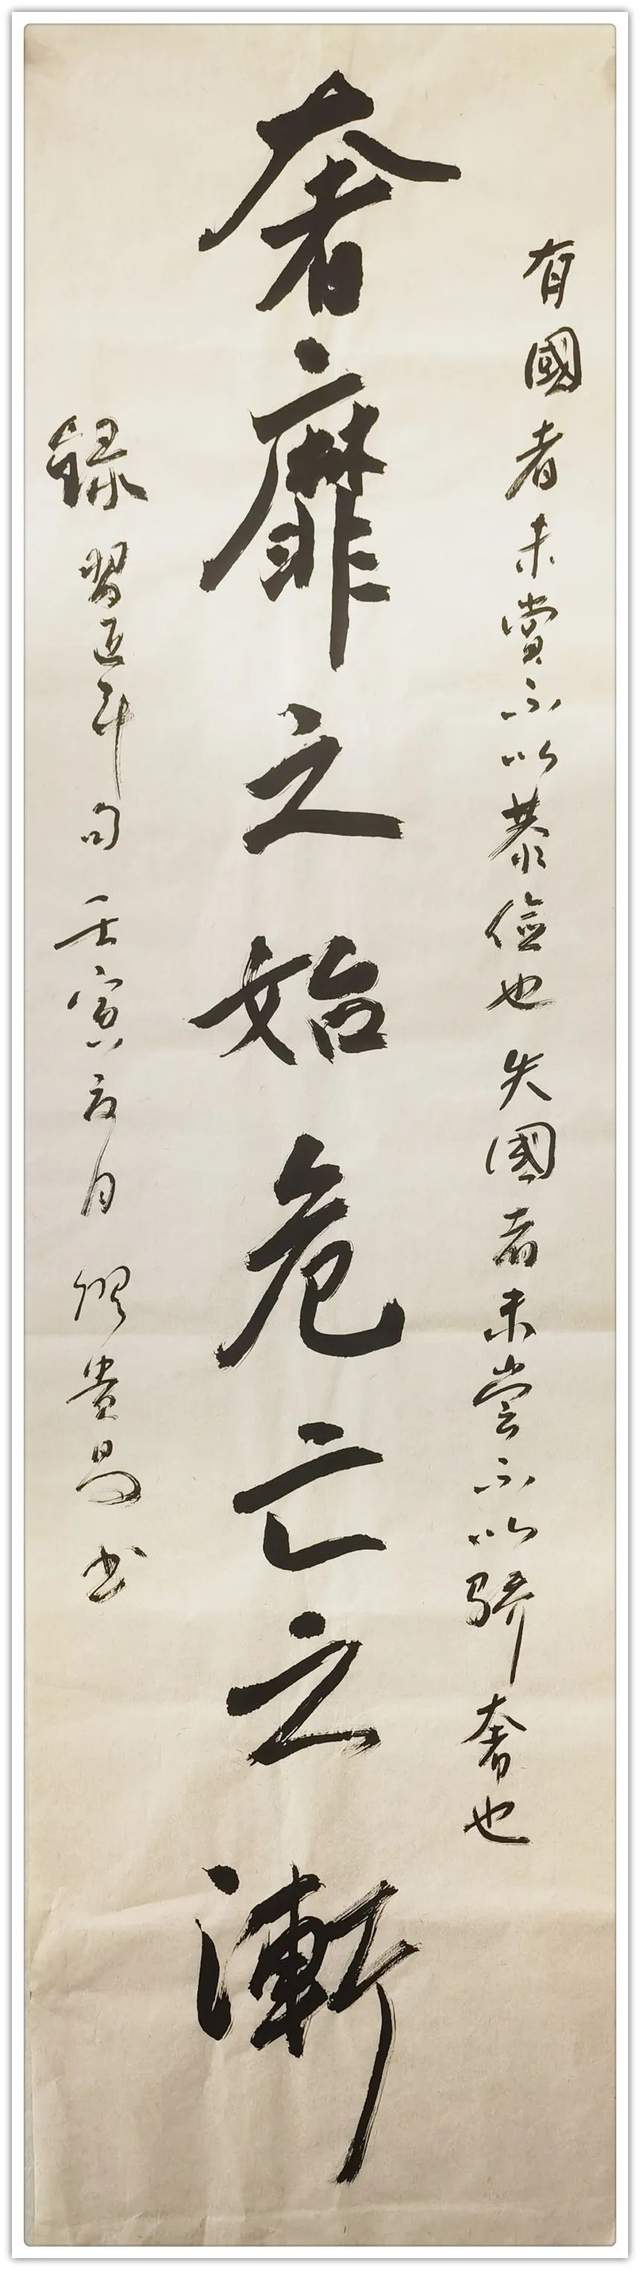 有國者未賞不以恭儉也失國者未嘗不以驕奢也
奢靡之始危亡之漸
録習近平句壬寅 月 貴昌书